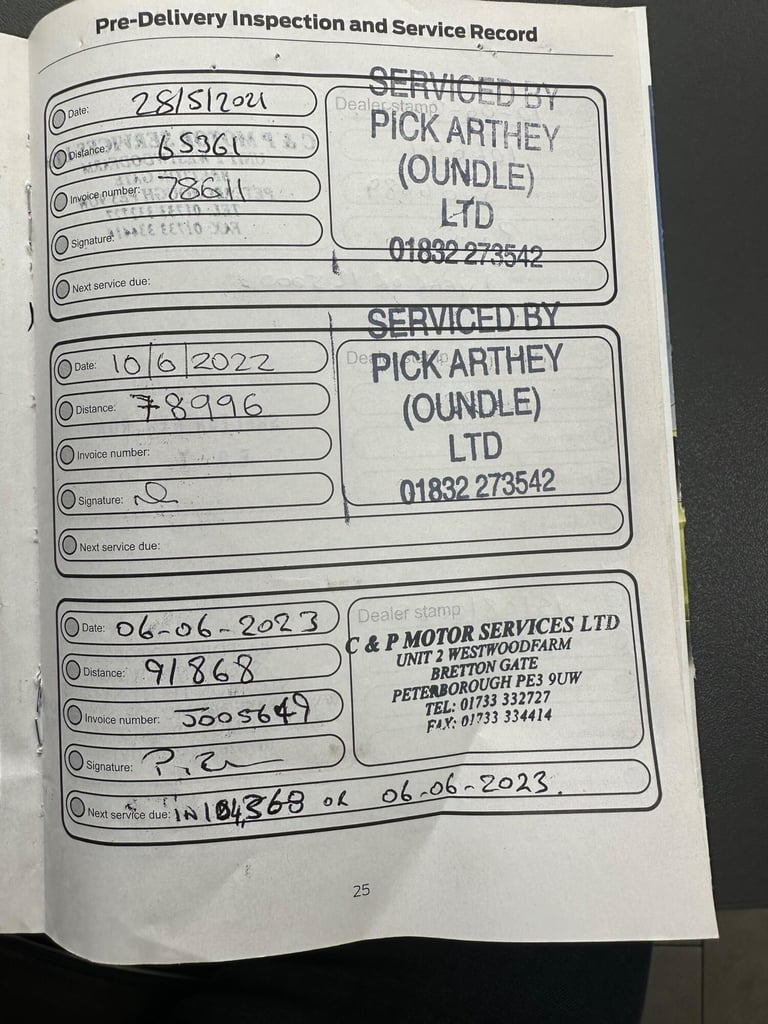 Pre-Delivery Inspection and Service Record
Date: 28/5/2021
Distance: 65361
Invoice number:
Signature:
Next service due:
Dealer stamp
SERVICED BY
PICK ARTHEY
(OUNDLE)
LTD
01832 273542
Date: 10/6/2022
Distance: 78996
Invoice number:
Signature:
Next service due:
Dealer stamp
SERVICED BY
PICK ARTHEY
(OUNDLE)
LTD
01832 273542
Date: 06-06-2023
Distance: 91868
Invoice number: J005649
Signature:
Next service due: IN 104,368 OR 06-06-2023.
Dealer stamp
C & P MOTOR SERVICES LTD
UNIT 2 WESTWOODFARM
BRETTON GATE
PETERBOROUGH PE3 9UW
TEL: 01733 332727
FAX: 01733 334414
25